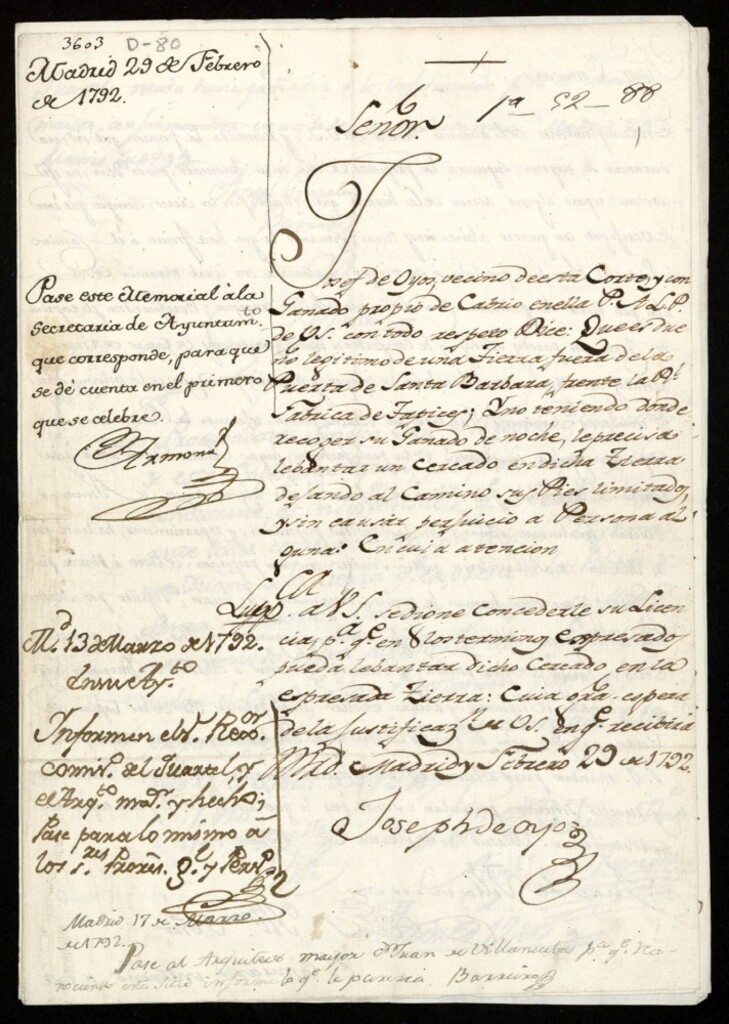 3603 D-80
Madrid 29 de Febrero
de 1792.
1a 52-88
Señor.
Josef de Oyos, vecino de esta Corte, y con
Ganado propio de Cabrio en ella P. A L. P.
de VS. con todo respeto Dice: Que es due
no legitimo de una Tierra fuera de la
Puerta de Santa Barbara, frente la Rl.
Fabrica de Tapices; Y no teniendo donde
recoger su Ganado de noche, le precisa
lebantar un Cercado en dicha Tierra
dejando al Camino sus Pies limitados,
y sin causar perjuicio a Persona al
guna: En cuia atencion
Pase este Memorial à la
Secretaria de Ayuntamto.
que corresponde, para que
se dé cuenta en el primero
que se celebre.
Armona
A VS. se digne Concederle su Licen
cia, pa. qe. en los terminos espresados
pueda lebantar dicho Cercado en la
espresada Tierra: Cuia espera
de la Justificazn. de VS. en qe. recibira
Mrd. Madrid y Febrero 29 de 1792.
Joseph de Oyos
Md. 13 de Marzo de 1792.
En su Ayto.
Informen el Sr. Rexor.
comiso. del Quartel, y
el Arqto. mor. y hecho;
Pase para lo mismo à
los Sres. Prores. Gl. y Persо.
Madrid 17 de Marzo
de 1792.
Pase al Arquitecto mayor Dn. Juan de Villanueba pa. qe. Reco-
nociendo este Sitio informe lo qe. le parezca Barreiro